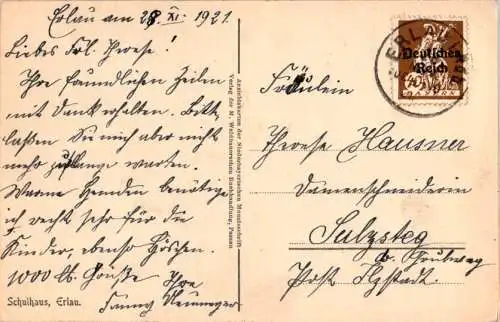 Erlau am 28. XI. 1921.
Liebes Frl. Therese!
Ihre freundlichen Zeilen
mit Dank erhalten. Bitte
laßen Sie mich aber nicht
mehr zu lange warten.
Warme Hemden benötige
ich recht sehr für die
Kinder, ebenso Höschen.
1000 lb. Grüße Ihre
Fanny Neumeyer
Schulhaus, Erlau.
Ansichtskarten der Niederbayerischen Monatsschrift
Verlag der M. Waldbauerschen Buchhandlung, Passau
Deutsches
Reich
Fräulein
Therese Hausner
Damenschneiderin
Sulzsteg
b. Thubweg
Post Ilzstadt.